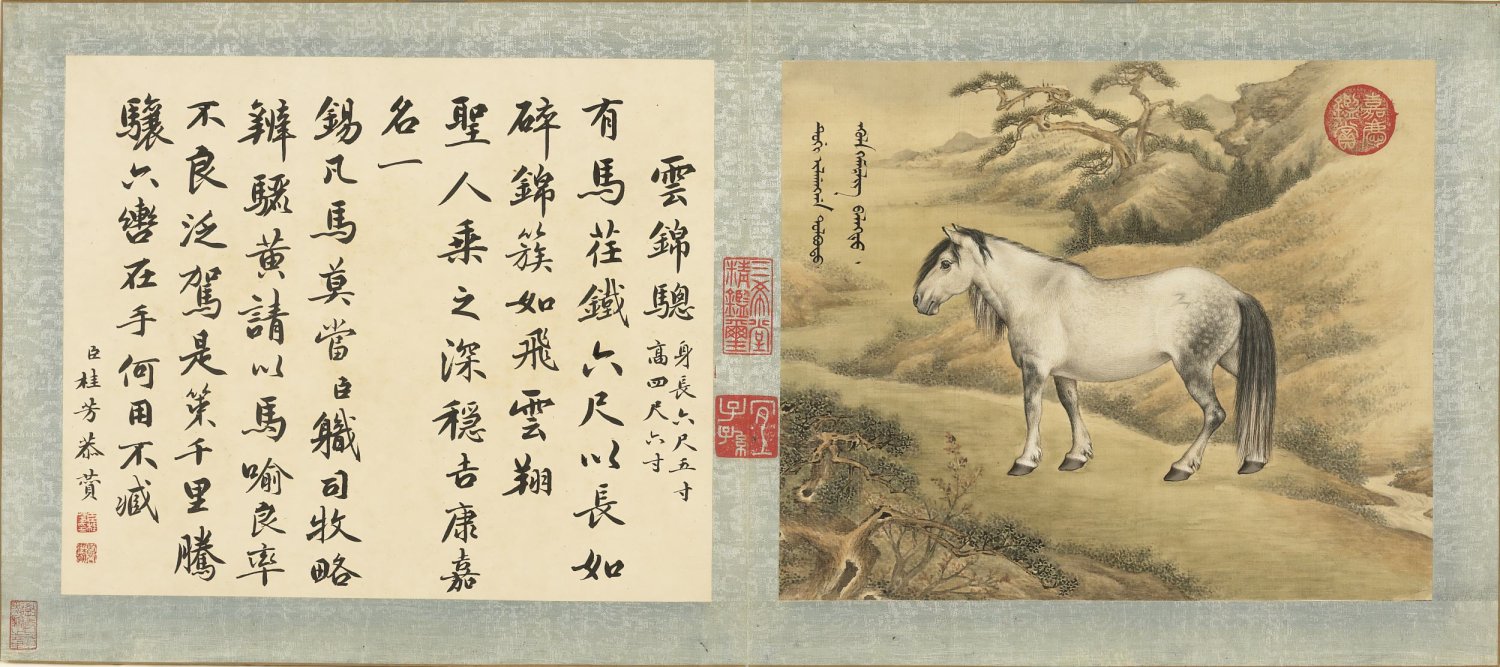 嘉慶鑑賞
三希堂
精鑑璽
宜
子孫
雲錦驄
身長六尺五寸
高四尺六寸
有馬鐵六尺以長如
碎錦簇如飛雲翔
聖人乘之深穩吉康嘉
名一
錫凡馬莫當臣職司牧略
辨驪黃請以馬喻良率
不良泛駕是策千里騰
驤六轡在手何用不臧
臣桂芳恭贊